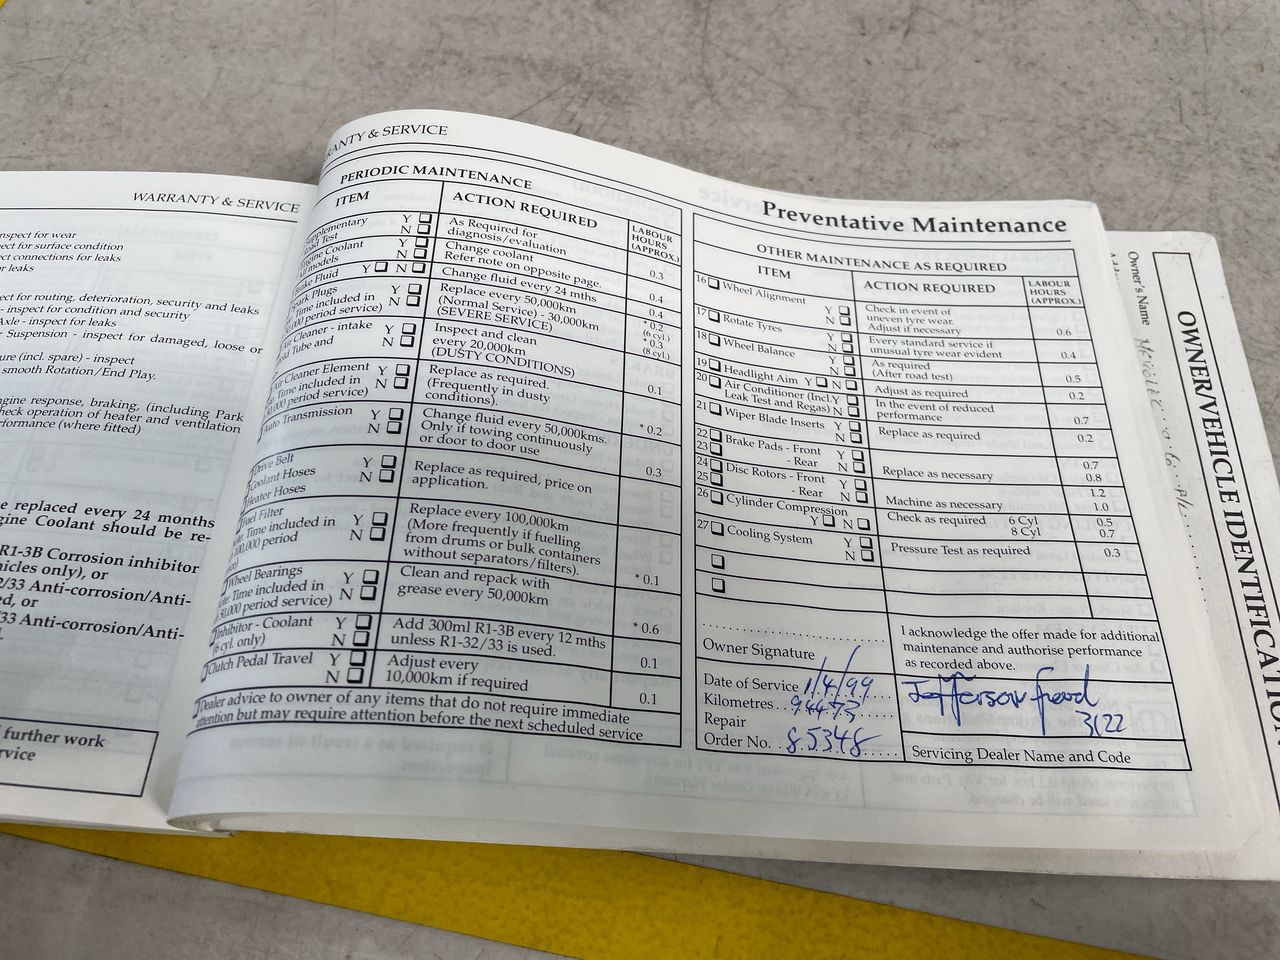 WARRANTY & SERVICE
nspect for wear
ect for surface condition
ect connections for leaks
r leaks
ect for routing, deterioration, security and leaks
- inspect for condition and security
Axle - inspect for leaks
r Suspension - inspect for damaged, loose or
ure (incl. spare) - inspect
smooth Rotation/End Play.
ngine response, braking, (including Park
heck operation of heater and ventilation
rformance (where fitted)
e replaced every 24 months
gine Coolant should be re-
R1-3B Corrosion inhibitor
hicles only), or
2/33 Anti-corrosion/Anti-
ed, or
/33 Anti-corrosion/Anti-
further work
rvice
RANTY & SERVICE
PERIODIC MAINTENANCE
ITEM ACTION REQUIRED LABOUR HOURS (APPROX.)
upplementary Y
oad Test N
As Required for
diagnosis/evaluation
0.3
ngine Coolant Y
All models N
Change coolant
Refer note on opposite page.
0.4
Brake Fluid Y N
Change fluid every 24 mths
0.4
park Plugs Y
Time included in N
0,000 period service)
Replace every 50,000km
(Normal Service) - 30,000km
(SEVERE SERVICE)
* 0.2
(6 cyl.)
* 0.3
(8 cyl.)
Air Cleaner - intake Y
old Tube and N
Inspect and clean
every 20,000km
(DUSTY CONDITIONS)
0.1
Air Cleaner Element Y
e. Time included in N
0,000 period service)
Replace as required.
(Frequently in dusty
conditions).
* 0.2
Auto Transmission Y
N
Change fluid every 50,000kms.
Only if towing continuously
or door to door use
0.3
Drive Belt Y
Coolant Hoses N
Heater Hoses
Replace as required, price on
application.
Fuel Filter Y
te: Time included in N
100,000 period
Replace every 100,000km
(More frequently if fuelling
from drums or bulk containers
without separators/filters).
* 0.1
Wheel Bearings Y
te: Time included in N
50,000 period service)
Clean and repack with
grease every 50,000km
* 0.6
Inhibitor - Coolant Y
(6 cyl. only) N
Add 300ml R1-3B every 12 mths
unless R1-32/33 is used.
0.1
Clutch Pedal Travel Y
N
Adjust every
10,000km if required
0.1
Dealer advice to owner of any items that do not require immediate
attention but may require attention before the next scheduled service
Preventative Maintenance
OTHER MAINTENANCE AS REQUIRED
ITEM ACTION REQUIRED LABOUR HOURS (APPROX.)
16 Wheel Alignment Y
N
Check in event of
uneven tyre wear.
Adjust if necessary
0.6
17 Rotate Tyres Y
N
Every standard service if
unusual tyre wear evident
0.4
18 Wheel Balance Y
N
As required
(After road test)
0.5
19 Headlight Aim Y N
Adjust as required
0.2
20 Air Conditioner (Incl. Y
Leak Test and Regas) N
In the event of reduced
performance
0.7
21 Wiper Blade Inserts Y
N
Replace as required
0.2
22 Brake Pads - Front Y
23 - Rear N
Replace as necessary
0.7
0.8
24 Disc Rotors - Front Y
25 - Rear N
Machine as necessary
1.2
1.0
26 Cylinder Compression
Y N
Check as required 6 Cyl 0.5
8 Cyl 0.7
27 Cooling System Y
N
Pressure Test as required
0.3
Owner Signature
I acknowledge the offer made for additional
maintenance and authorise performance
as recorded above.
Date of Service 1/4/99
Kilometres 94473
Repair
Order No. 85348
Jefferson Ford
3122
Servicing Dealer Name and Code
Owner's Name
OWNER/VEHICLE IDENTIFICATION